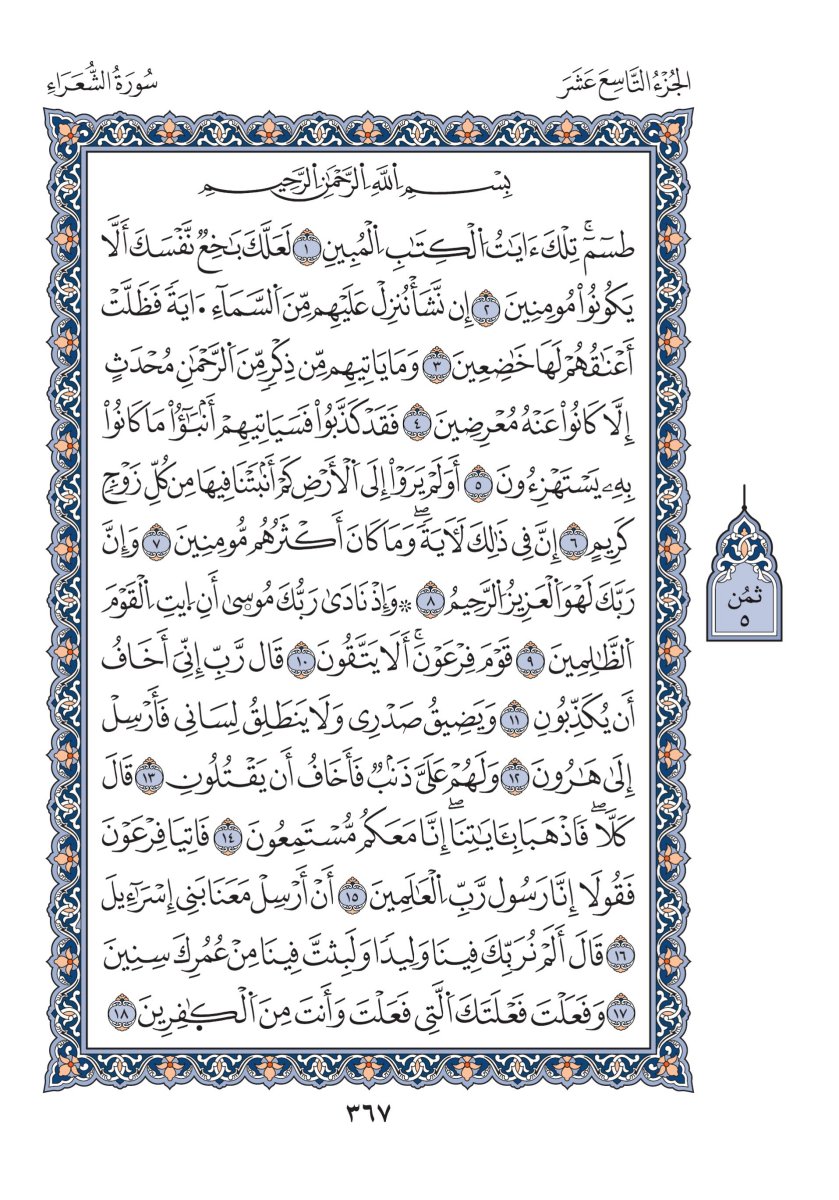 الجُزْءُ التَّاسِعَ عَشَرَ
سُورَةُ الشُّعَرَاءِ
بِسْمِ اِ۬للَّهِ اِ۬لرَّحْمَٰنِ اِ۬لرَّحِيمِ
طسٓمٓۚ تِلْكَ ءَايَٰتُ اُ۬لْكِتَٰبِ اِ۬لْمُبِينِ ١ لَعَلَّكَ بَٰخِعٞ نَّفْسَكَ أَلَّا
يَكُونُواْ مُومِنِينَ ٢ إِن نَّشَأْ نُنزِلْ عَلَيْهِم مِّنَ اَ۬لسَّمَآءِ اٰيَةٗ فَظَلَّتْ
أَعْنَٰقُهُمْ لَهَا خَٰضِعِينَ ٣ وَمَا يَاتِيهِم مِّن ذِكْرٖ مِّنَ اَ۬لرَّحْمَٰنِ مُحْدَثٍ
إِلَّا كَانُواْ عَنْهُ مُعْرِضِينَ ٤ فَقَدْ كَذَّبُواْ فَسَيَاتِيهِمْ أَنۢبَٰٓؤُاْ مَا كَانُواْ
بِهِۦ يَسْتَهْزِءُونَ ٥ أَوَلَمْ يَرَوْاْ إِلَى اَ۬لْأَرْضِ كَمْ أَنۢبَتْنَا فِيهَا مِن كُلِّ زَوْجٖ
كَرِيمٍ ٦ إِنَّ فِى ذَٰلِكَ لَأٓيَةٗۖ وَمَا كَانَ أَكْثَرُهُم مُّومِنِينَ ٧ وَإِنَّ
رَبَّكَ لَهْوَ اَ۬لْعَزِيزُ اُ۬لرَّحِيمُ ٨ ۞وَإِذْ نَادَىٰ رَبُّكَ مُوسِىٰ أَنِ اِ۪يتِ اِ۬لْقَوْمَ
اَ۬لظَّٰلِمِينَ ٩ قَوْمَ فِرْعَوْنَۚ أَلَا يَتَّقُونَ ١٠ قَال رَّبِّ إِنِّىَ أَخَافُ
أَن يُكَذِّبُونِ ١١ وَيَضِيقُ صَدْرِى وَلَا يَنطَلِقُ لِسَانِى فَأَرْسِلْ
إِلَىٰ هَٰرُونَ ١٢ وَلَهُمْ عَلَىَّ ذَنۢبٞ فَأَخَافُ أَن يَقْتُلُونِ ١٣ قَالَ
كَلَّاۖ فَاَذْهَبَا بِـَٔايَٰتِنَاۖ إِنَّا مَعَكُم مُّسْتَمِعُونَ ١٤ فَاتِيَا فِرْعَوْنَ
فَقُولَا إِنَّا رَسُول رَّبِّ اِ۬لْعَٰلَمِينَ ١٥ أَنْ أَرْسِلْ مَعَنَا بَنِى إِسْرَٰٓءِيلَ
١٦ قَالَ أَلَمْ نُرَبِّكَ فِينَا وَلِيدٗا وَلَبِثتَّ فِينَا مِنْ عُمُرِكَ سِنِينَ
١٧ وَفَعَلْتَ فَعْلَتَكَ اَ۬لَّتِى فَعَلْتَ وَأَنتَ مِنَ اَ۬لْكٰ۪فِرِينَ ١٨
ثمُن
٥
٣٦٧